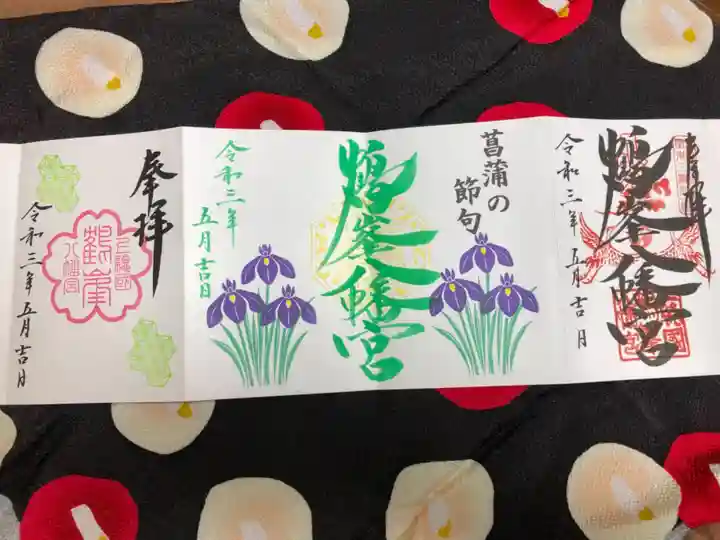 奉拝
鶴峯
八幡宮
令和三年五月吉日
菖蒲の
節句
鶴峯八幡宮
令和三年
五月吉日
鶴峯八幡宮
令和三年五月吉日